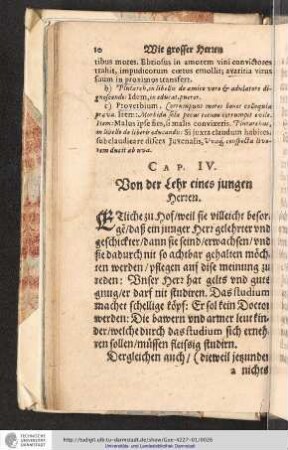 10 Wie grosser Herren
tibus mores. Ebriosus in amorem vini convictores
trahit, impudicorum cœtus emollit; avaritia virus
suum in proximos transfert.
b) Plutarch. in libello de amico vero & adulatore di-
gnoscendo: Idem, in educat. pueror.
c) Proverbium: Corrumpunt mores bonos colloquia
prava. Item: Morbida sola pecus totum corrumpit ovile.
Item: Malus ipse fies, si malis convixeris. Plutarchus,
in libello de liberis educandis: Si juxta claudum habites,
subclaudicare disces Juvenalis, Uvaq; conspecta livo-
rem ducit ab uva.
CAP. IV.
Von der Lehr eines jungen
Herren.
ETliche zu Hof/weil sie villeicht besor-
gē/daß ein junger Herr gelehrter vnd
geschickter/dann sie seind/erwachsen/vnd
sie dadurch nit so achtbar gehalten möch-
ten werden/pflegen auf dise meinung zu
reden: Vnser Herr hat gelts vnd guts
gnug/er darf nit studiren. Das studium
machet schellige köpf: Er sol kein Doctor
werden: Die bawern vnd armer leut kin-
der/welche durch das studium sich erneh-
ren sollen/müssen fleissig studirn.
Dergleichen auch/(dieweil jezunder
a nichts
TECHNISCHE
UNIVERSITÄT
DARMSTADT
http://tudigit.ulb.tu-darmstadt.de/show/Gue-4227-01/0026
Universitäts- und Landesbibliothek Darmstadt